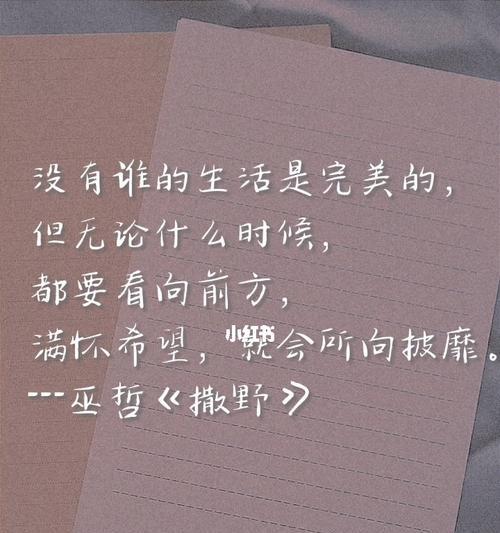 没有谁的生活是完美的，
但无论什么时候，
都要看向前方，
满怀希望，就会所向披靡。
---巫哲《撒野》
小红书